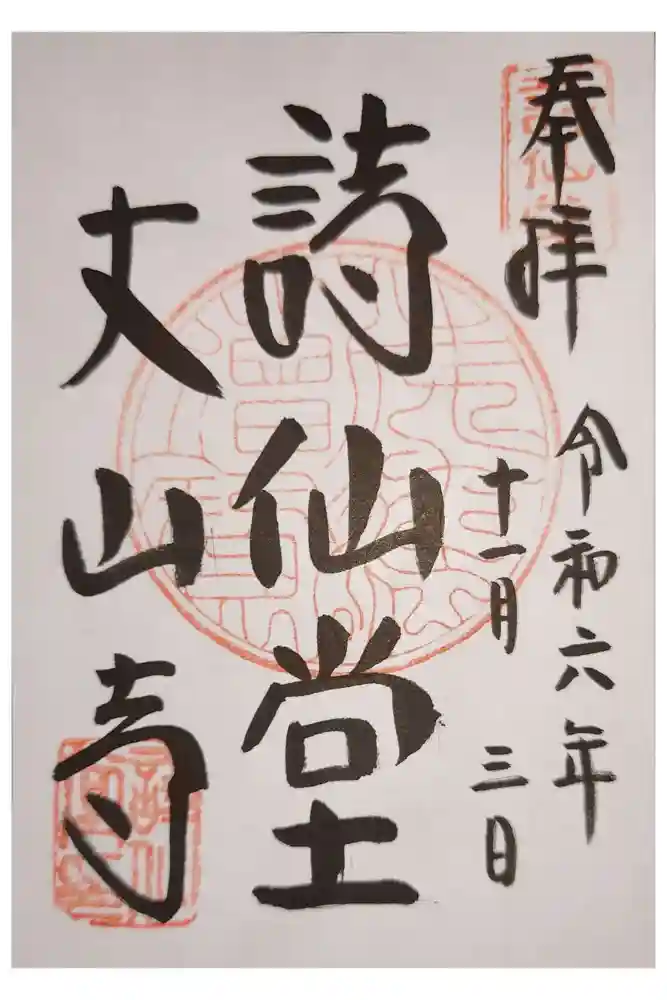 奉拝
令和六年
十一月
三日
詩仙堂
丈山寺